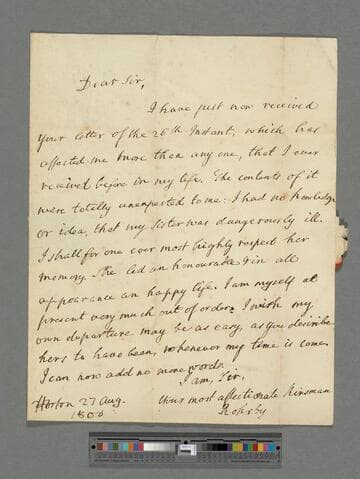 Dear Sir,
I have just now received
your letter of the 26th Instant, which has
affected me more then any one, that I ever
received before in my life. The contents of it
were totally unexpected to me: I had no knowledge
or idea, that my Sister was dangerously ill.
I shall for one ever most highly respect her
memory. She led an honourable & in all
appearance an happy life. I am myself at
present very much out of order. I wish my
own departure may be as easy, as you describe
hers to have been, whenever my time is come.
I can now add no more words.
I am, Sir,
Your most affectionate Kinsman
Horton 27 Aug. Rokeby
1800